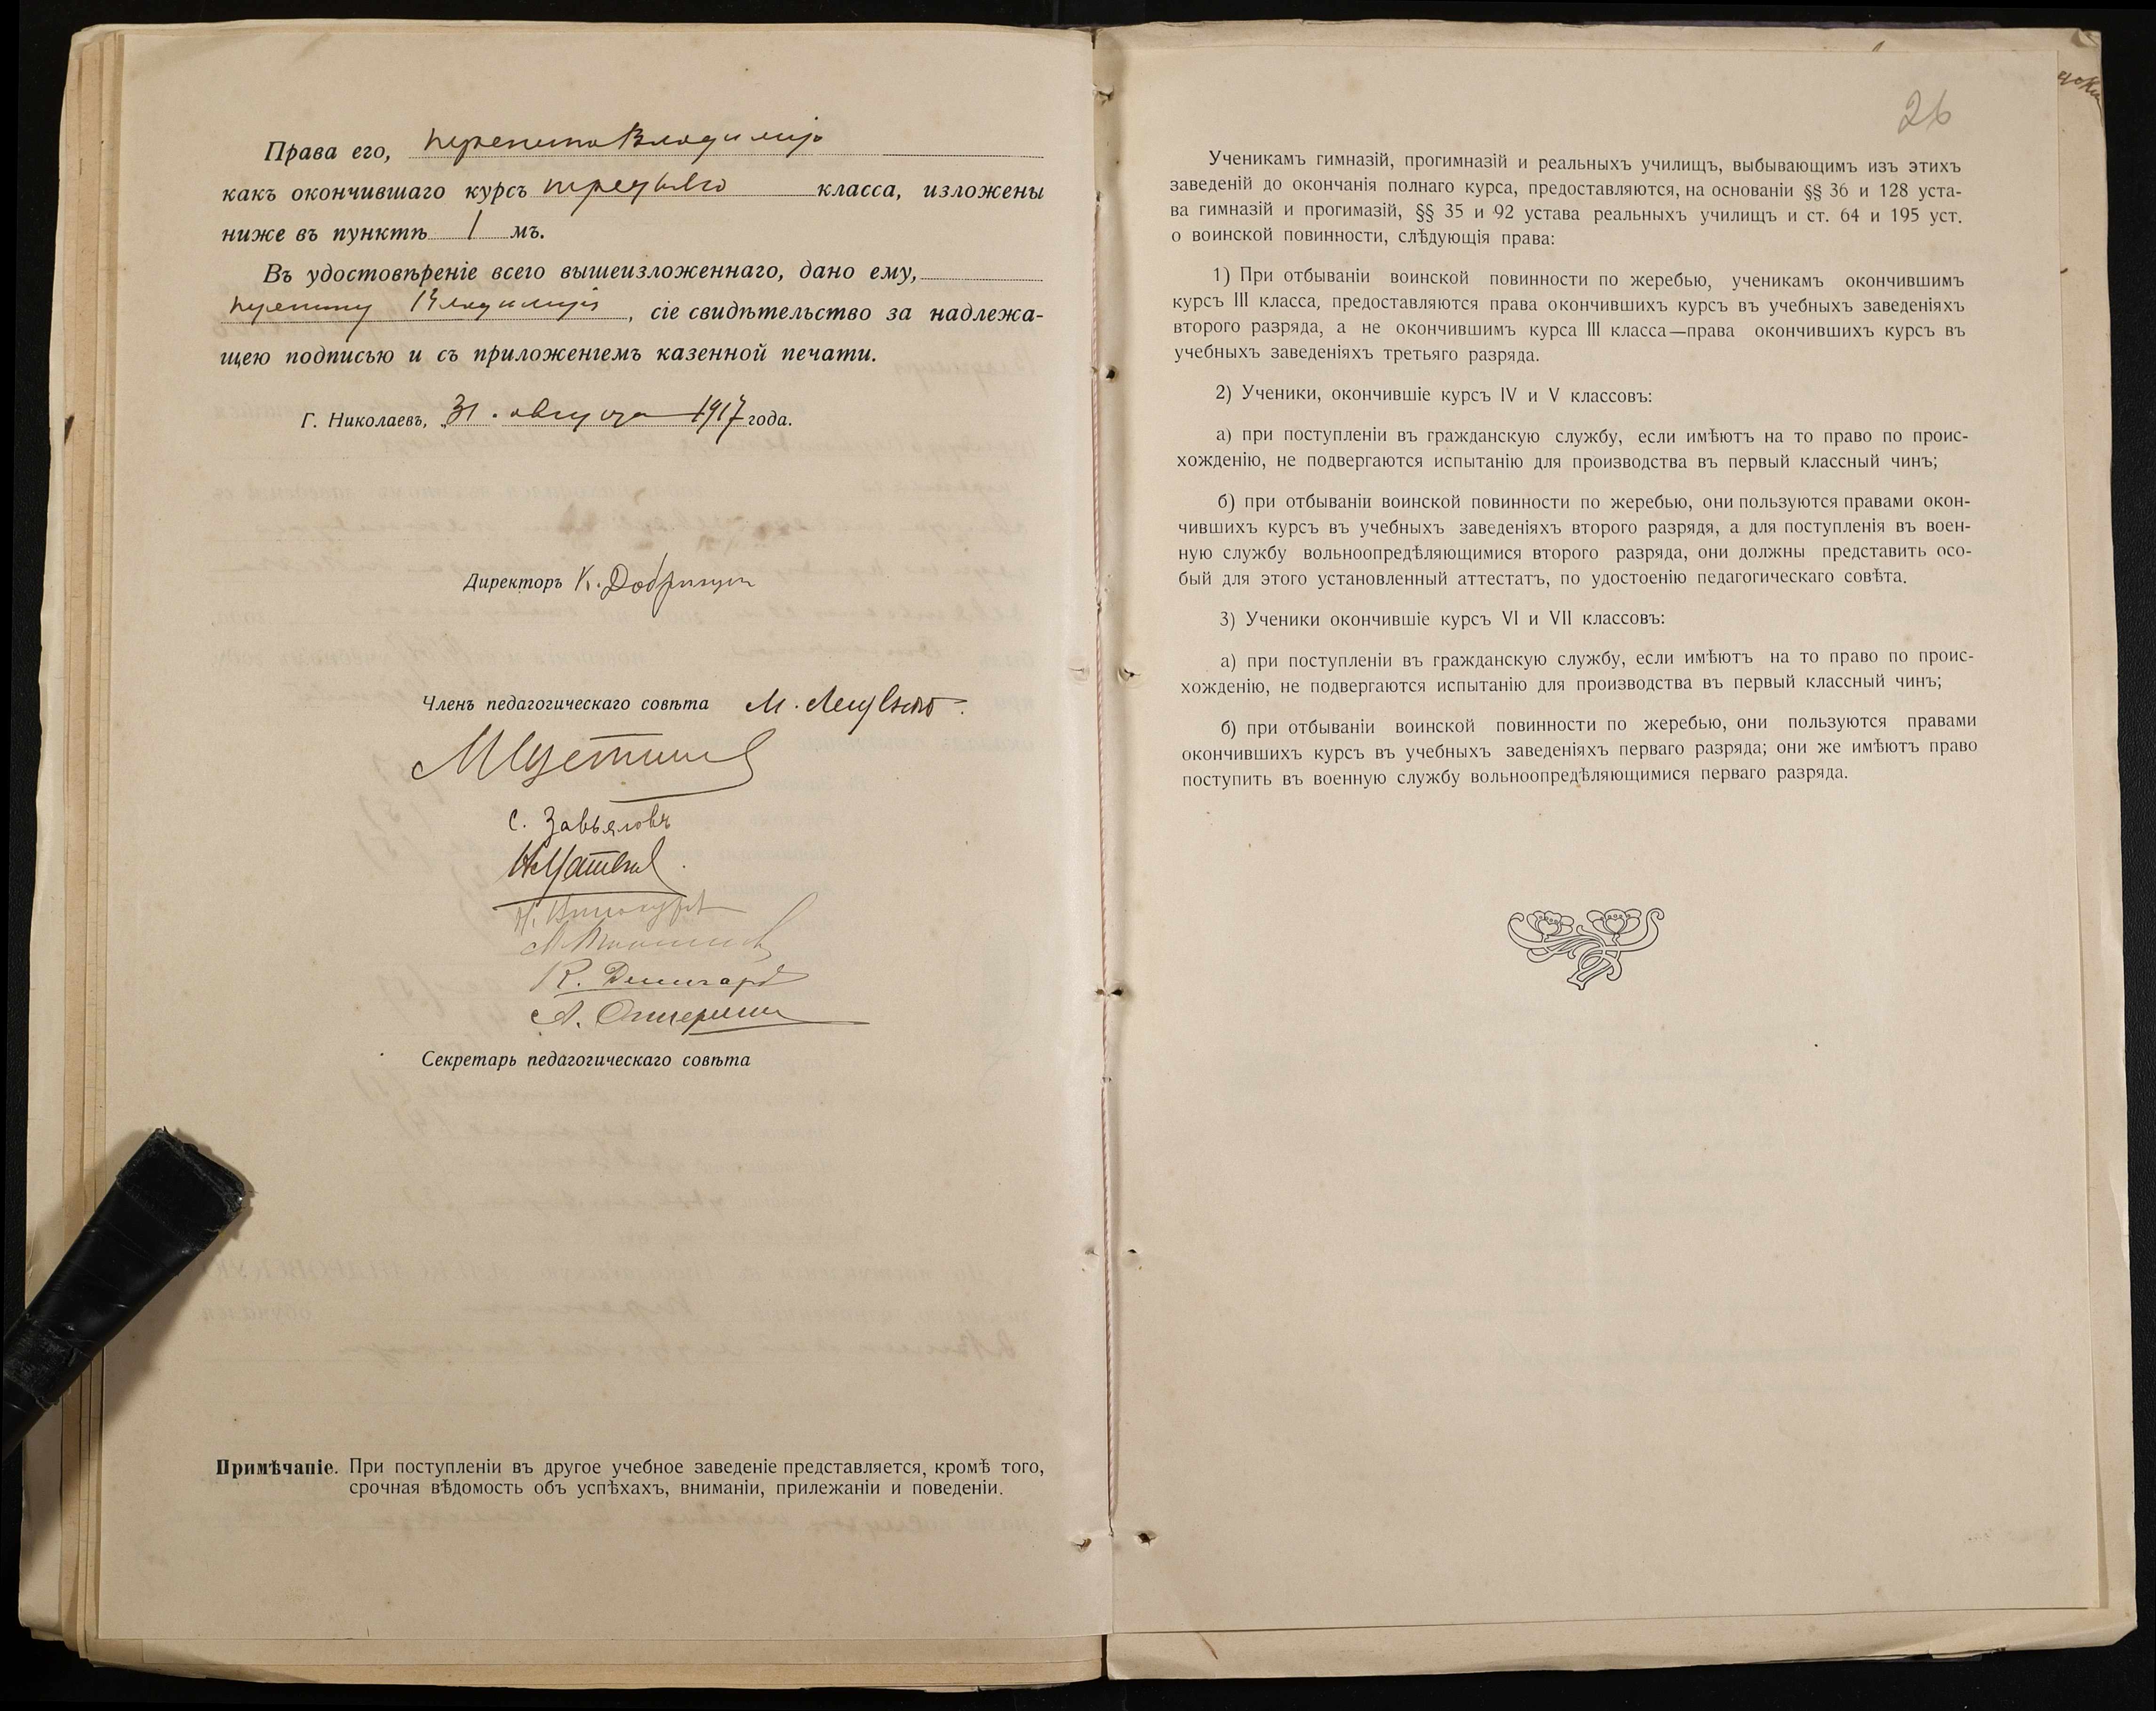 Права его, Владимира
какъ окончившаго курсъ третьяго класса, изложены
ниже въ пунктѣ 1 мъ.
Въ удостовѣреніе всего вышеизложеннаго, дано ему,
Владимиру, сіе свидѣтельство за надлежа-
щею подписью и съ приложеніемъ казенной печати.
Г. Николаевъ, 31. августа 1917 года.
Директоръ К.
Членъ педагогическаго совѣта М.
С. Завьяловъ
К.
А.
Секретарь педагогическаго совѣта
Примѣчаніе. При поступленіи въ другое учебное заведеніе представляется, кромѣ того,
срочная вѣдомость объ успѣхахъ, вниманіи, прилежаніи и поведеніи.
26
Ученикамъ гимназій, прогимназій и реальныхъ училищъ, выбывающимъ изъ этихъ
заведеній до окончанія полнаго курса, предоставляются, на основаніи §§ 36 и 128 уста-
ва гимназій и прогимазій, §§ 35 и 92 устава реальныхъ училищъ и ст. 64 и 195 уст.
о воинской повинности, слѣдующія права:
1) При отбываніи воинской повинности по жеребью, ученикамъ окончившимъ
курсъ III класса, предоставляются права окончившихъ курсъ въ учебныхъ заведеніяхъ
второго разряда, а не окончившимъ курса III класса—права окончившихъ курсъ въ
учебныхъ заведеніяхъ третьяго разряда.
2) Ученики, окончившіе курсъ IV и V классовъ:
а) при поступленіи въ гражданскую службу, если имѣютъ на то право по проис-
хожденію, не подвергаются испытанію для производства въ первый классный чинъ;
б) при отбываніи воинской повинности по жеребью, они пользуются правами окон-
чившихъ курсъ въ учебныхъ заведеніяхъ второго разрядя, а для поступленія въ воен-
ную службу вольноопредѣляющимися второго разряда, они должны представить осо-
бый для этого установленный аттестатъ, по удостоенію педагогическаго совѣта.
3) Ученики окончившіе курсъ VI и VII классовъ:
а) при поступленіи въ гражданскую службу, если имѣютъ на то право по проис-
хожденію, не подвергаются испытанію для производства въ первый классный чинъ;
б) при отбываніи воинской повинности по жеребью, они пользуются правами
окончившихъ курсъ въ учебныхъ заведеніяхъ перваго разряда; они же имѣютъ право
поступить въ военную службу вольноопредѣляющимися перваго разряда.